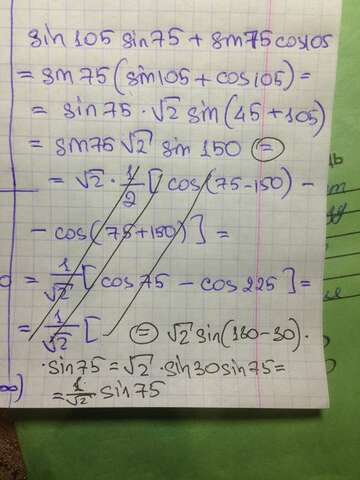 sin 105 sin 75 + sin 75 cos 105
= sin 75 (sin 105 + cos 105) =
= sin 75 · √2 sin (45 + 105)
= sin 75 √2 sin 150 =
= √2 · 1/2 [cos (75 - 150) -
- cos (75 + 150)] =
= 1/√2 [cos 75 - cos 225] =
= 1/√2 [ = √2 sin (180 - 30) ·
· sin 75 = √2 · sin 30 sin 75 =
= 1/√2 sin 75
∞)